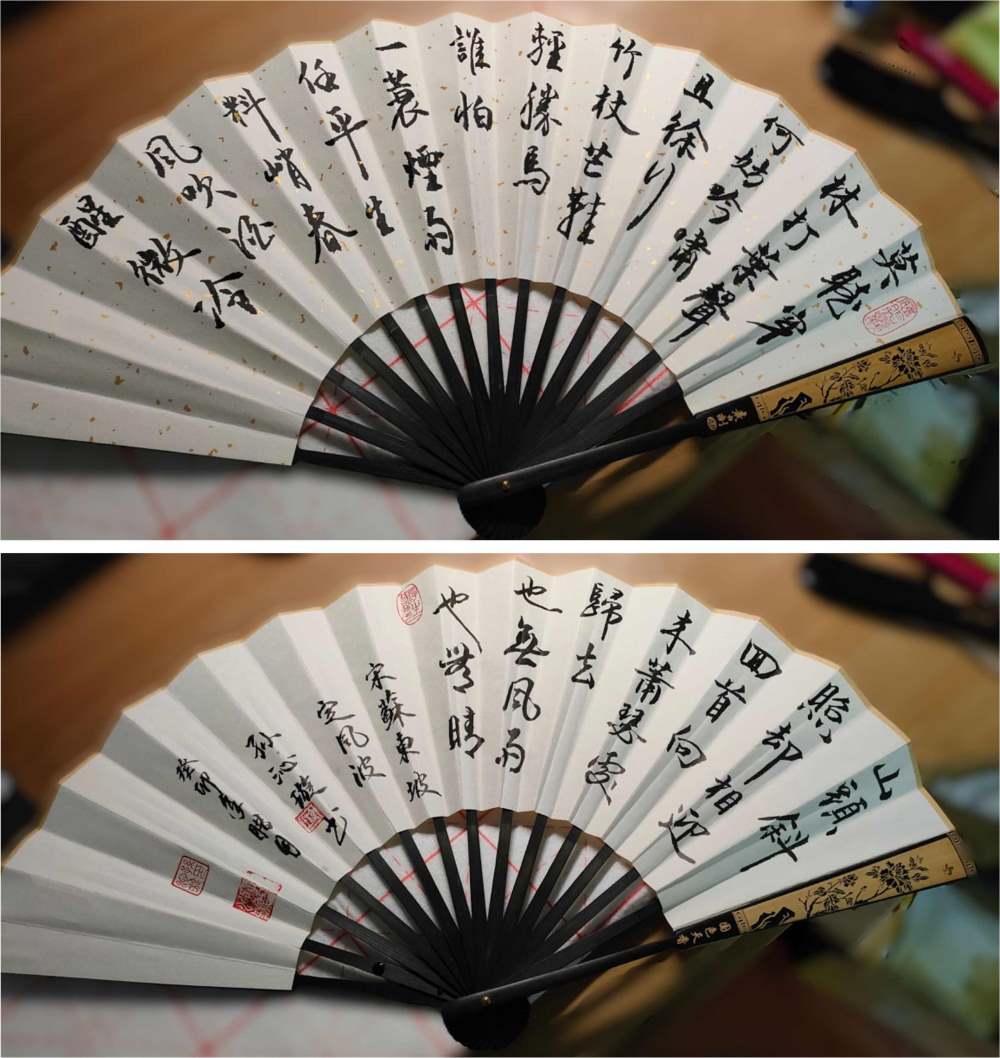 莫聽穿
林打葉聲
何妨吟嘯
且徐行
竹杖芒鞋
輕勝馬
誰怕
一蓑煙雨
任平生
料峭春
風吹酒
醒微冷
山頭斜
照却相迎
回首向
来蕭瑟處
歸去
也無風雨
也無晴
宋蘇東坡
定風波
孫沁璇书
癸卯
國色天香